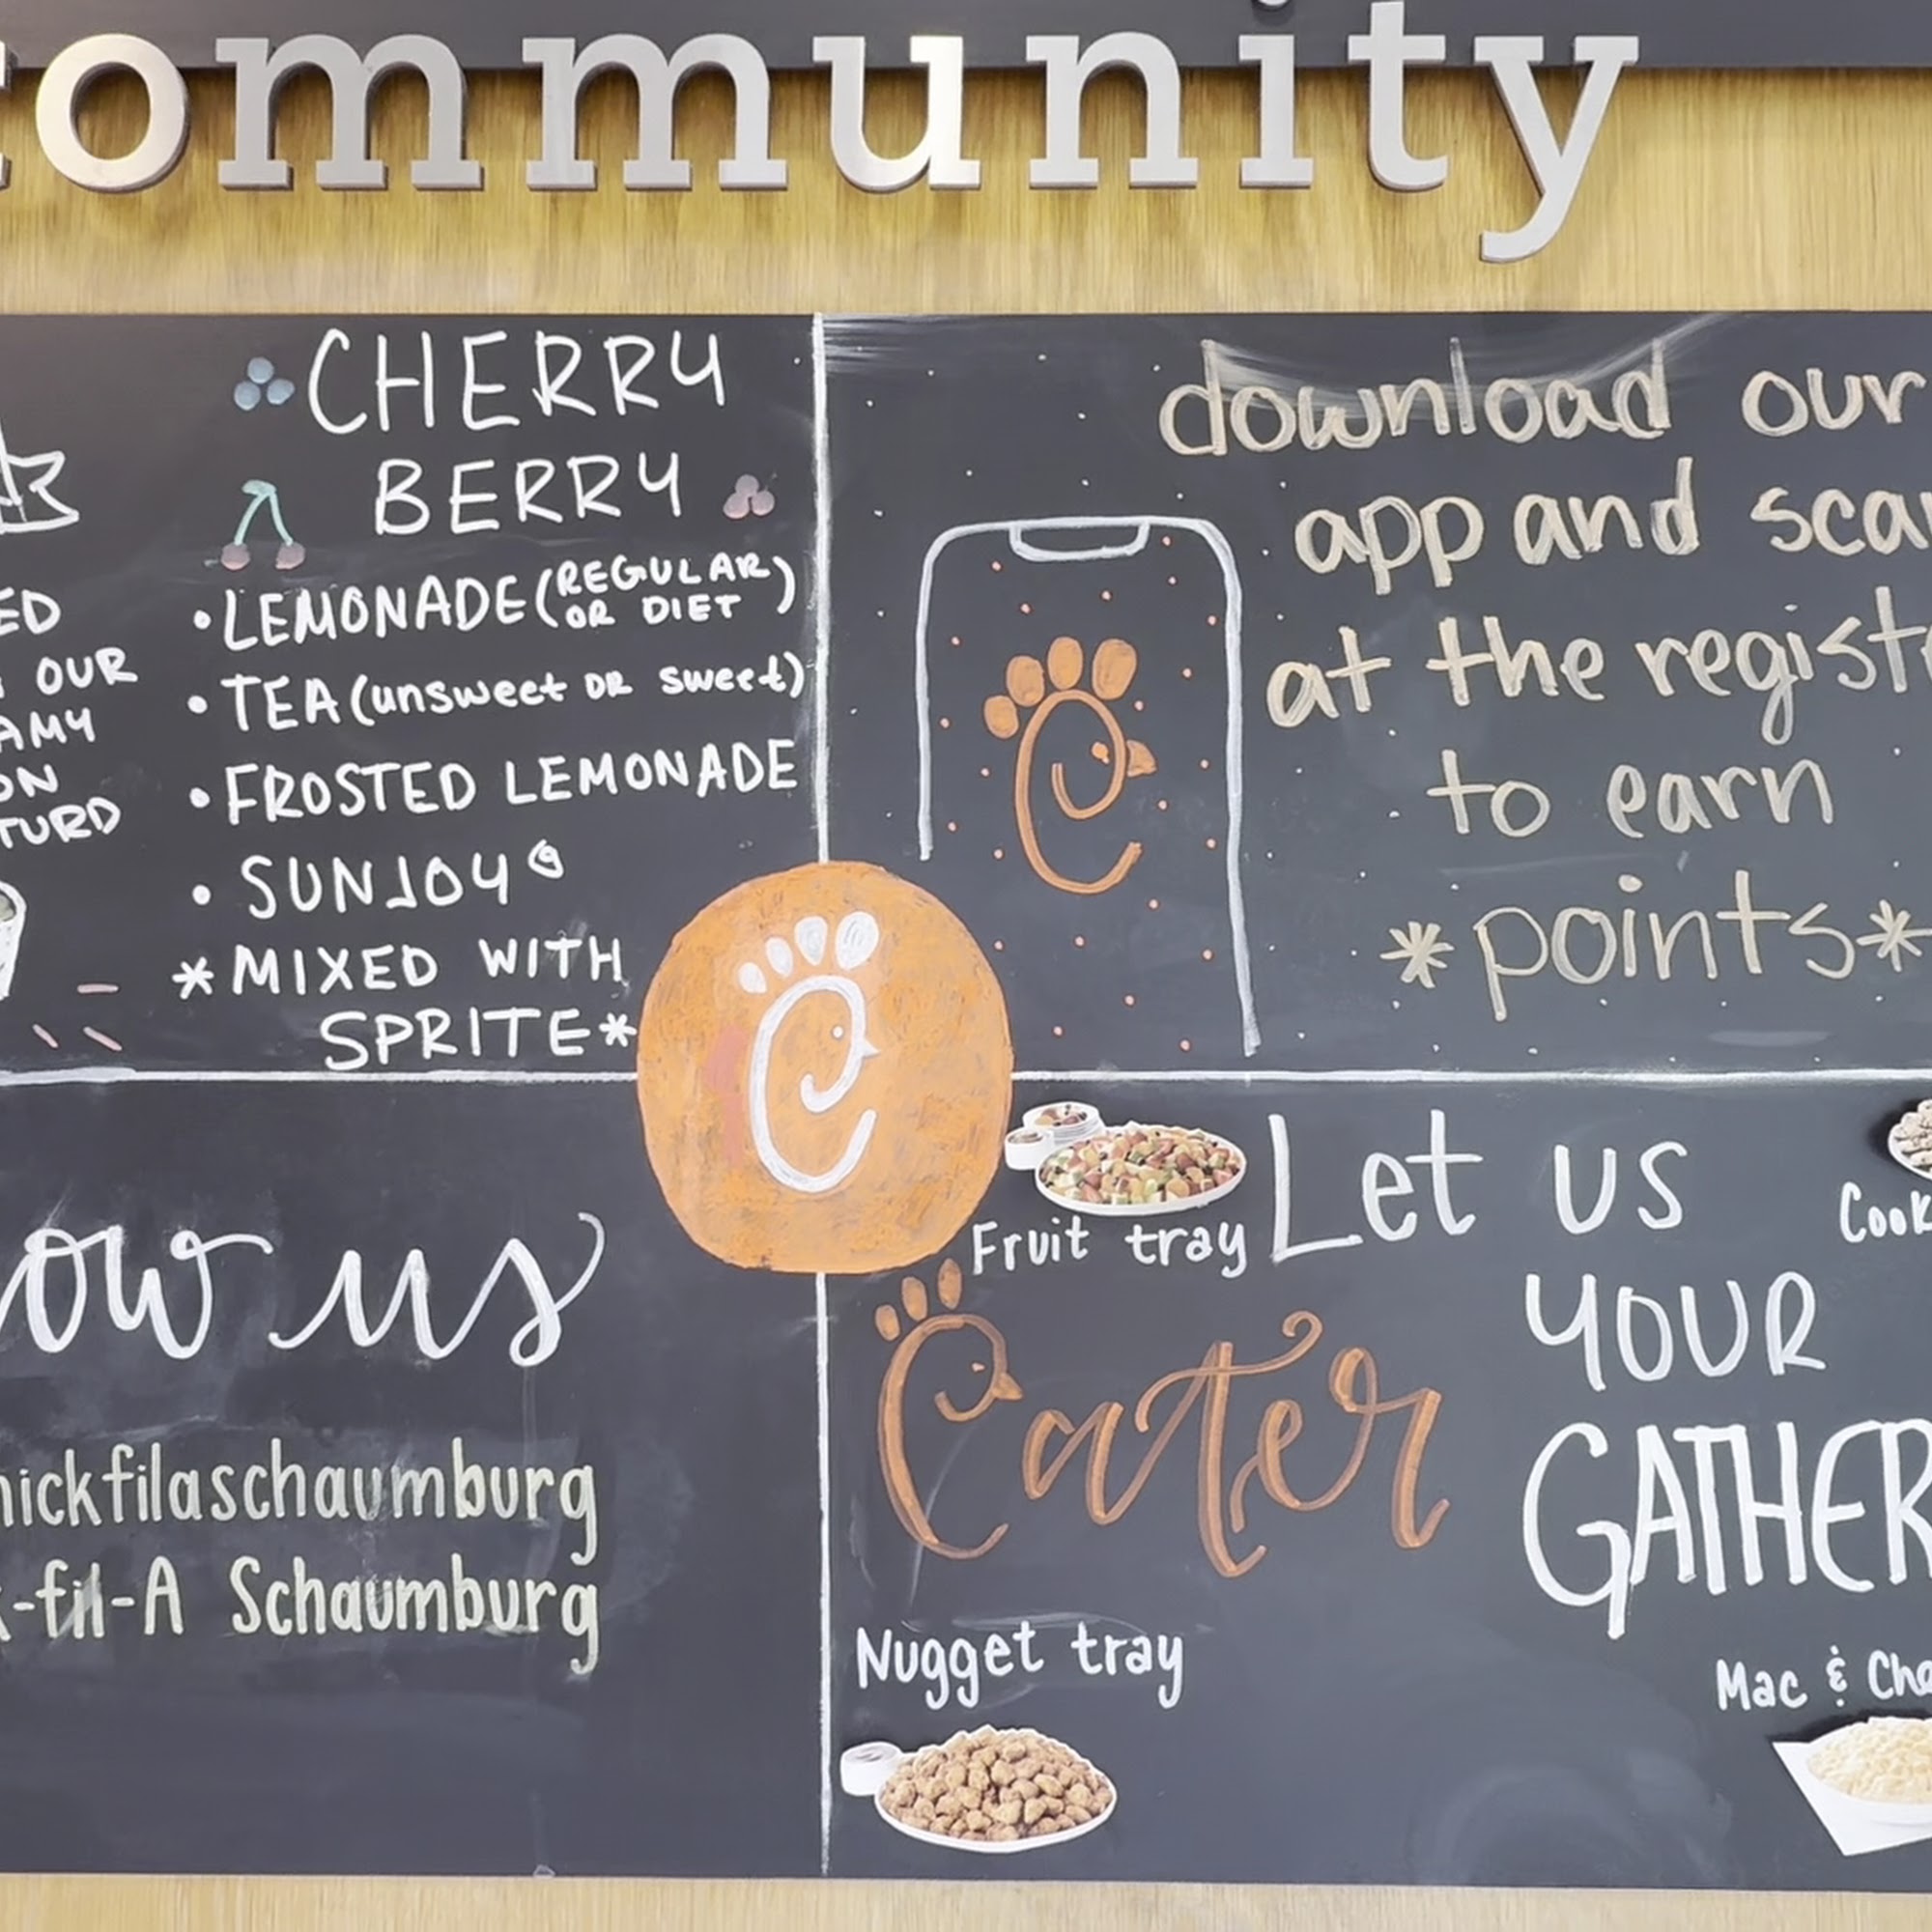 community
CHERRY
BERRY
• LEMONADE (REGULAR OR DIET)
• TEA (unsweet OR sweet)
• FROSTED LEMONADE
• SUNJOY
*MIXED WITH
SPRITE*
ED
OUR
AMY
ON
TURD
download our
app and scan
at the registe
to earn
*points*
ow us
hickfilaschaumburg
k-fil-A Schaumburg
Fruit tray
Let us
Cook
Cater
YOUR
GATHER
Nugget tray
Mac & Che